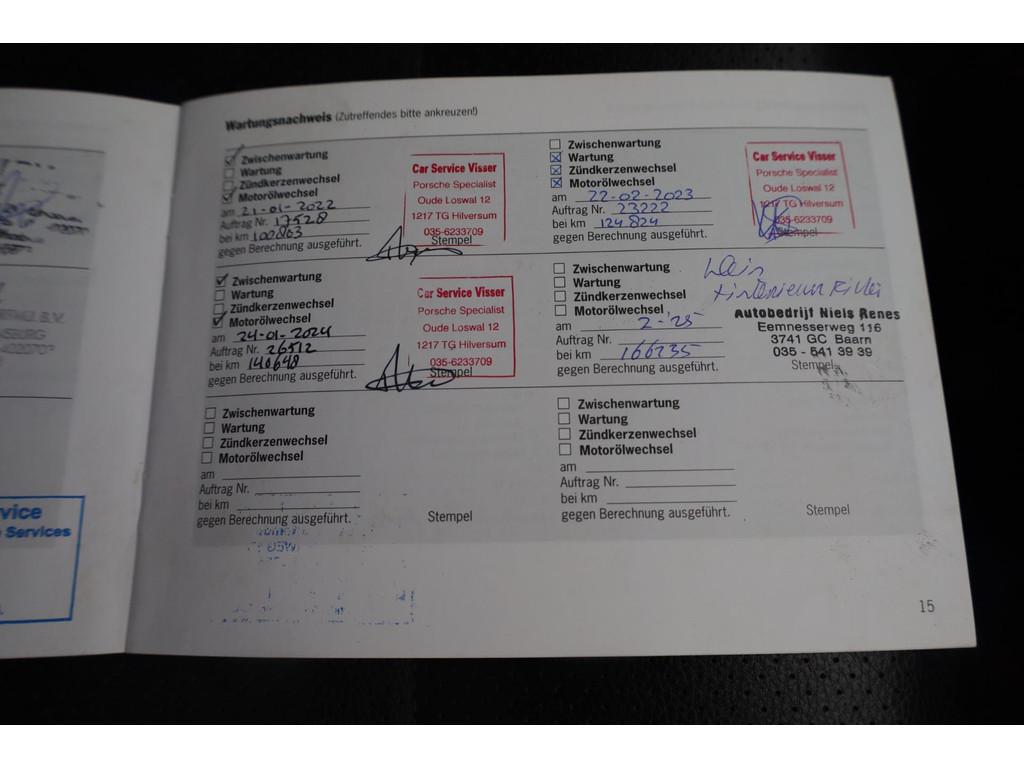 Wartungsnachweis (Zutreffendes bitte ankreuzen!)
Zwischenwartung
Wartung
Zündkerzenwechsel
Motorölwechsel
am 21-01-2022
Auftrag Nr. 17528
bei km 100803
gegen Berechnung ausgeführt.
Car Service Visser
Porsche Specialist
Oude Loswal 12
1217 TG Hilversum
035-6233709
Stempel
Zwischenwartung
Wartung
Zündkerzenwechsel
Motorölwechsel
am 22-02-2023
Auftrag Nr. 23222
bei km 124824
gegen Berechnung ausgeführt.
Car Service Visser
Porsche Specialist
Oude Loswal 12
1217 TG Hilversum
035-6233709
Stempel
Zwischenwartung
Wartung
Zündkerzenwechsel
Motorölwechsel
am 24-01-2024
Auftrag Nr. 26512
bei km 140648
gegen Berechnung ausgeführt.
Car Service Visser
Porsche Specialist
Oude Loswal 12
1217 TG Hilversum
035-6233709
Stempel
Zwischenwartung
Wartung
Zündkerzenwechsel
Motorölwechsel
am 2-25
Auftrag Nr.
bei km 166235
gegen Berechnung ausgeführt.
Autobedrijf Niels Renes
Eemnesserweg 116
3741 GC Baarn
035 - 541 39 39
Stempel
Zwischenwartung
Wartung
Zündkerzenwechsel
Motorölwechsel
am
Auftrag Nr.
bei km
gegen Berechnung ausgeführt.
Stempel
Zwischenwartung
Wartung
Zündkerzenwechsel
Motorölwechsel
am
Auftrag Nr.
bei km
gegen Berechnung ausgeführt.
Stempel
15
B.V.
Services